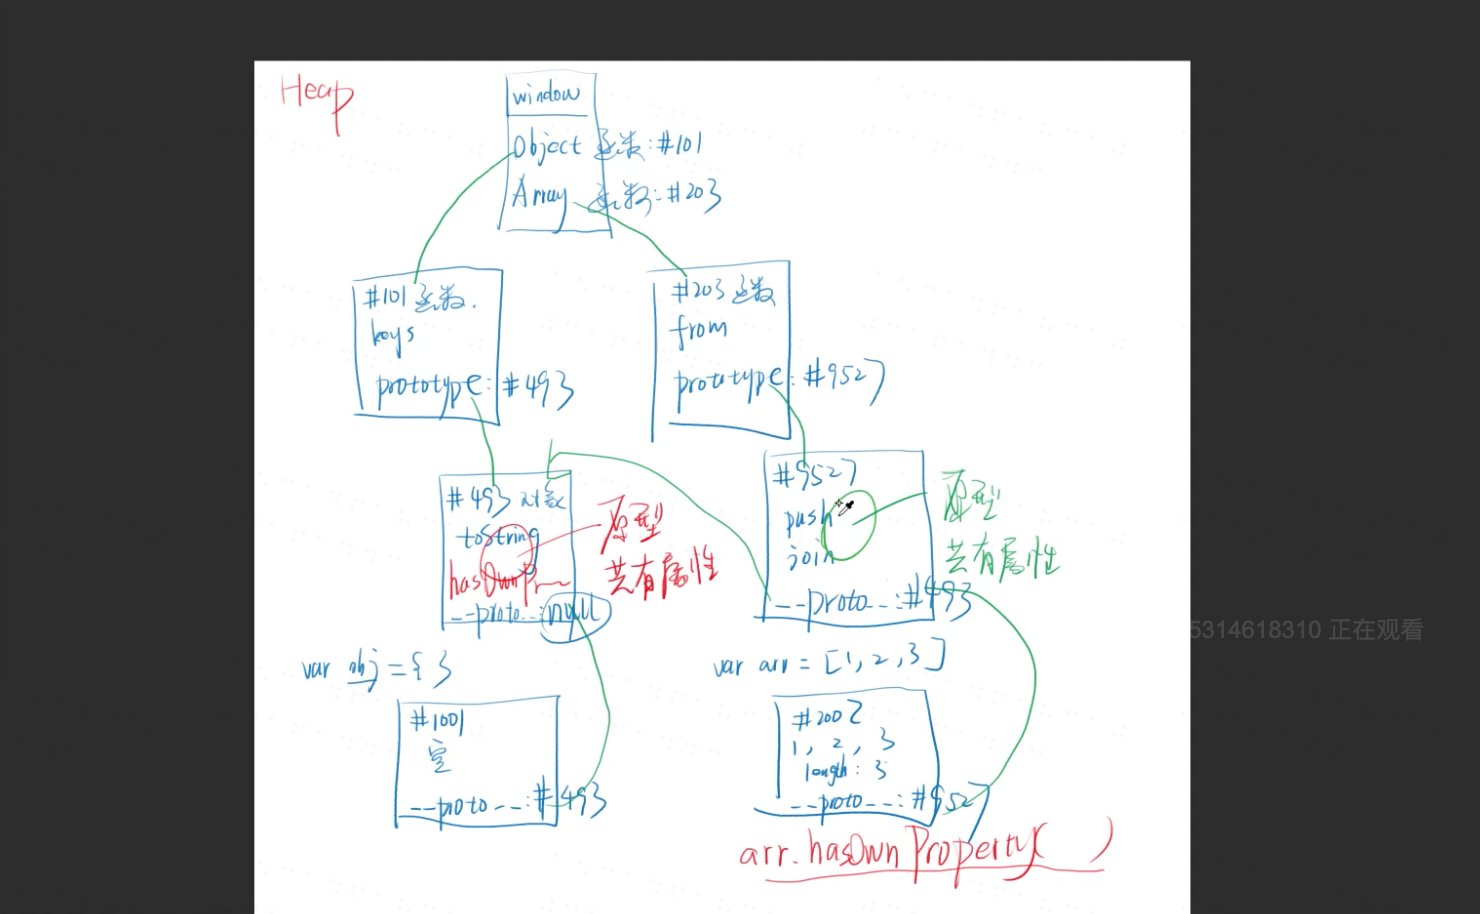 Heap
window
Object 函数:#101
Array 函数:#203
#101 函数.
keys
prototype: #493
#203 函数
from
prototype: #9527
#493 对象
toString
hasOwnPr
__proto__:null
原型
共有属性
#9527
push
join
__proto__:#493
原型
共有属性
var obj = { }
#1001
空
__proto__:#493
var arr = [1, 2, 3]
#2002
1, 2, 3
length: 3
__proto__:#9527
arr.hasOwnProperty( )
5314618310 正在观看